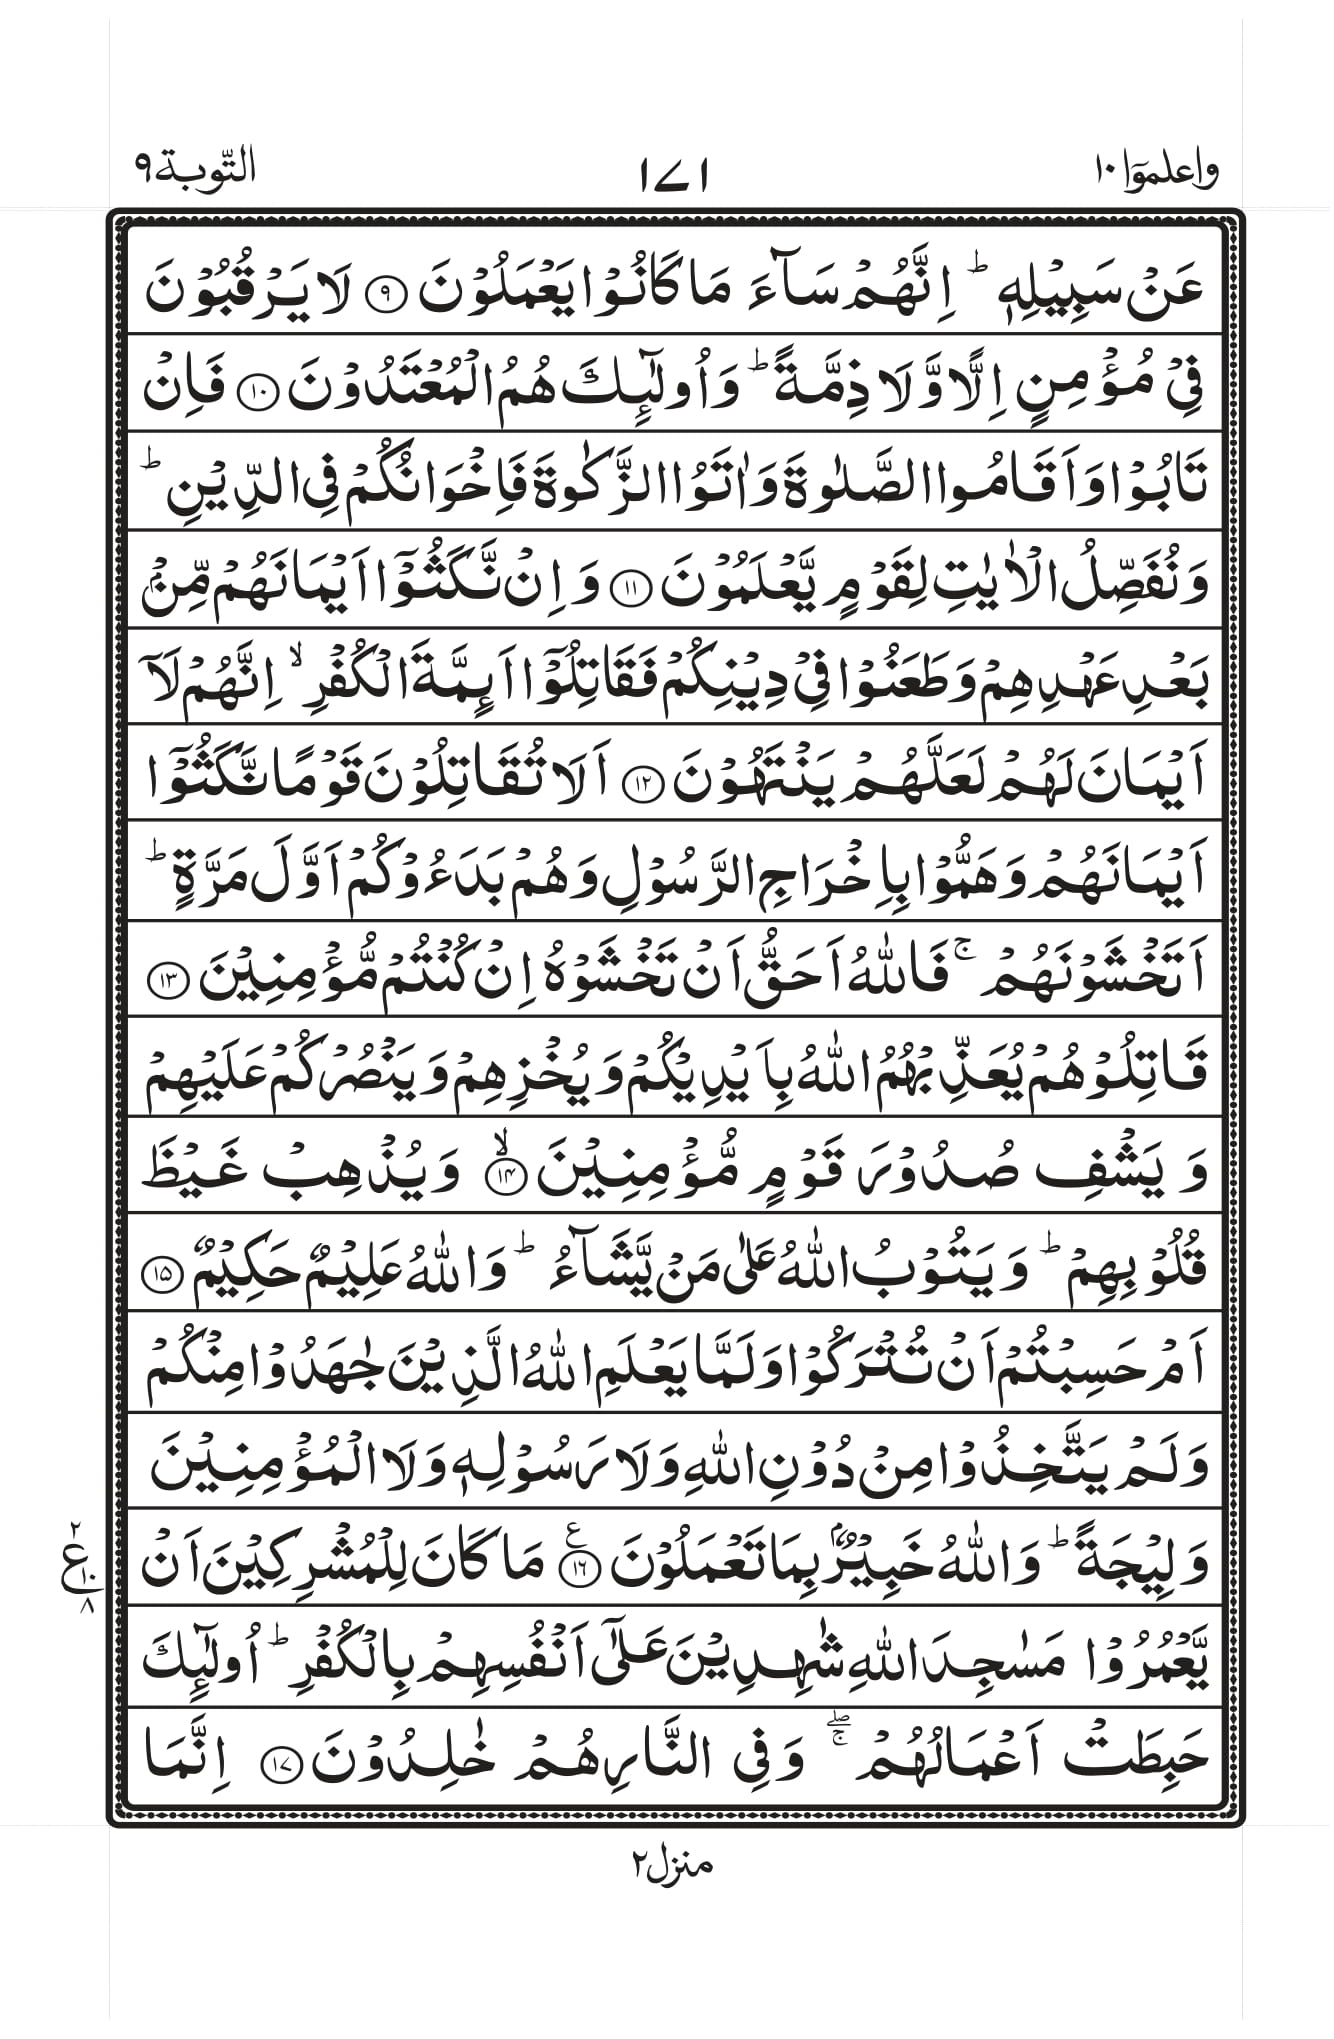 واعلموٓا ١٠
١٧١
التّوبة ٩
عَنۡ سَبِيۡلِهٖ ؕ اِنَّهُمۡ سَآءَ مَا كَانُوۡا يَعۡمَلُوۡنَ ﴿۹﴾ لَا يَرۡقُبُوۡنَ
فِىۡ مُؤۡمِنٍ اِلًّا وَّلَا ذِمَّةً ؕ وَاُولٰٓٮِٕكَ هُمُ الۡمُعۡتَدُوۡنَ ﴿۱۰﴾ فَاِنۡ
تَابُوۡا وَاَقَامُوا الصَّلٰوةَ وَاٰتَوُا الزَّكٰوةَ فَاِخۡوَانُكُمۡ فِى الدِّيۡنِ ؕ
وَنُفَصِّلُ الۡاٰيٰتِ لِقَوۡمٍ يَّعۡلَمُوۡنَ ﴿۱۱﴾ وَاِنۡ نَّكَثُوۡۤا اَيۡمَانَهُمۡ مِّنۡۢ
بَعۡدِ عَهۡدِهِمۡ وَطَعَنُوۡا فِىۡ دِيۡنِكُمۡ فَقَاتِلُوۡۤا اَٮِٕمَّةَ الۡكُفۡرِ ۙ اِنَّهُمۡ لَاۤ
اَيۡمَانَ لَهُمۡ لَعَلَّهُمۡ يَنۡتَهُوۡنَ ﴿۱۲﴾ اَلَا تُقَاتِلُوۡنَ قَوۡمًا نَّكَثُوۡۤا
اَيۡمَانَهُمۡ وَهَمُّوۡا بِاِخۡرَاجِ الرَّسُوۡلِ وَهُمۡ بَدَءُوۡكُمۡ اَوَّلَ مَرَّةٍ ؕ
اَتَخۡشَوۡنَهُمۡ ۚ فَاللّٰهُ اَحَقُّ اَنۡ تَخۡشَوۡهُ اِنۡ كُنۡتُمۡ مُّؤۡمِنِيۡنَ ﴿۱۳﴾
قَاتِلُوۡهُمۡ يُعَذِّبۡهُمُ اللّٰهُ بِاَيۡدِيۡكُمۡ وَيُخۡزِهِمۡ وَيَنۡصُرۡكُمۡ عَلَيۡهِمۡ
وَيَشۡفِ صُدُوۡرَ قَوۡمٍ مُّؤۡمِنِيۡنَ ۙ ﴿۱۴﴾ وَيُذۡهِبۡ غَيۡظَ
قُلُوۡبِهِمۡ ؕ وَيَتُوۡبُ اللّٰهُ عَلٰى مَنۡ يَّشَآءُ ؕ وَاللّٰهُ عَلِيۡمٌ حَكِيۡمٌ ﴿۱۵﴾
اَمۡ حَسِبۡتُمۡ اَنۡ تُتۡرَكُوۡا وَلَمَّا يَعۡلَمِ اللّٰهُ الَّذِيۡنَ جٰهَدُوۡا مِنۡكُمۡ
وَلَمۡ يَتَّخِذُوۡا مِنۡ دُوۡنِ اللّٰهِ وَلَا رَسُوۡلِهٖ وَلَا الۡمُؤۡمِنِيۡنَ
وَلِيۡجَةً ؕ وَاللّٰهُ خَبِيۡرٌۢ بِمَا تَعۡمَلُوۡنَ ﴿۱۶﴾ ع مَا كَانَ لِلۡمُشۡرِكِيۡنَ اَنۡ
٢ ع ١٠ ٨
يَّعۡمُرُوۡا مَسٰجِدَ اللّٰهِ شٰهِدِيۡنَ عَلٰٓى اَنۡفُسِهِمۡ بِالۡكُفۡرِ ؕ اُولٰٓٮِٕكَ
حَبِطَتۡ اَعۡمَالُهُمۡ ۖۚ وَفِى النَّارِ هُمۡ خٰلِدُوۡنَ ﴿۱۷﴾ اِنَّمَا
منزل ٢